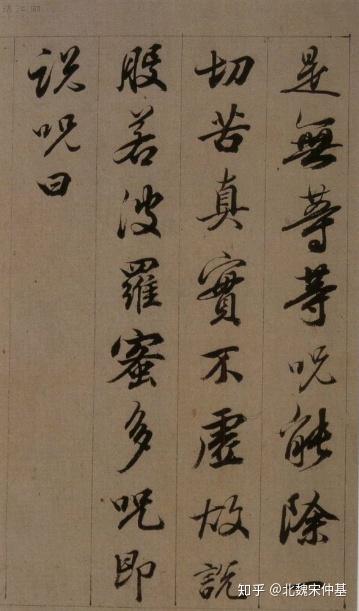 是無等等呪能除一
切苦真實不虛故說
般若波羅蜜多呪即
説呪曰
知乎 @北魏宋仲基